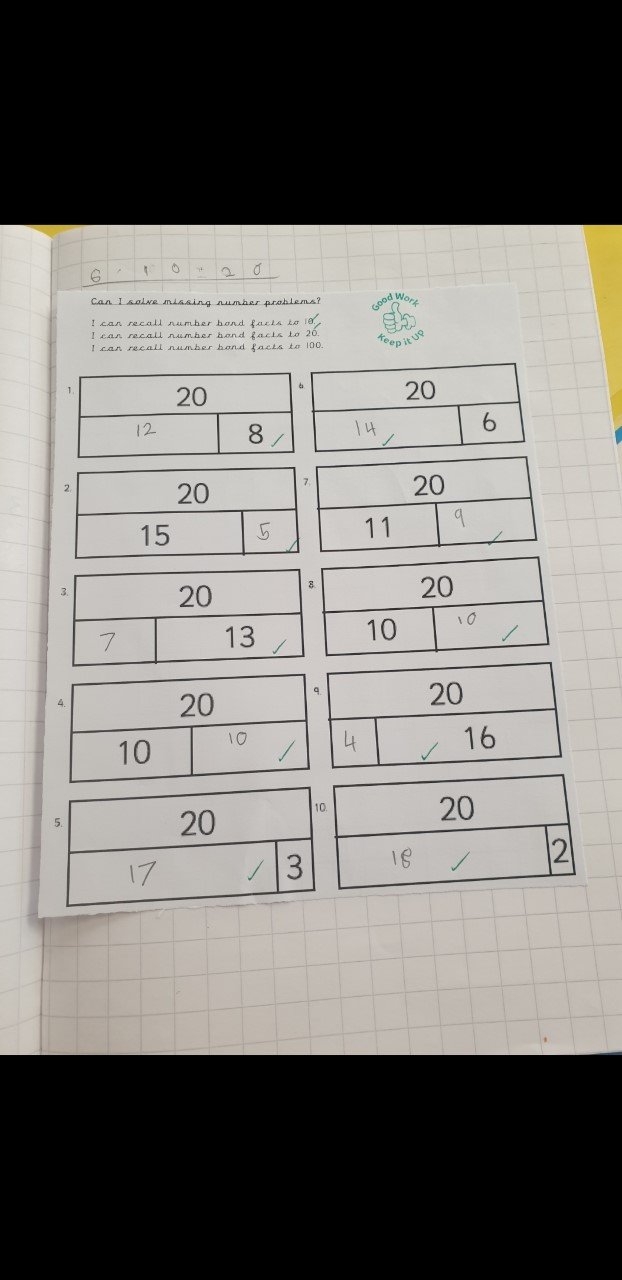 6 · 10 · 20
Can I solve missing number problems?
I can recall number bond facts to 10.
I can recall number bond facts to 20.
I can recall number bond facts to 100.
Good Work
Keep it Up
1.
20
12 8
2.
20
15 5
3.
20
7 13
4.
20
10 10
5.
20
17 3
6.
20
14 6
7.
20
11 9
8.
20
10 10
9.
20
4 16
10.
20
18 2